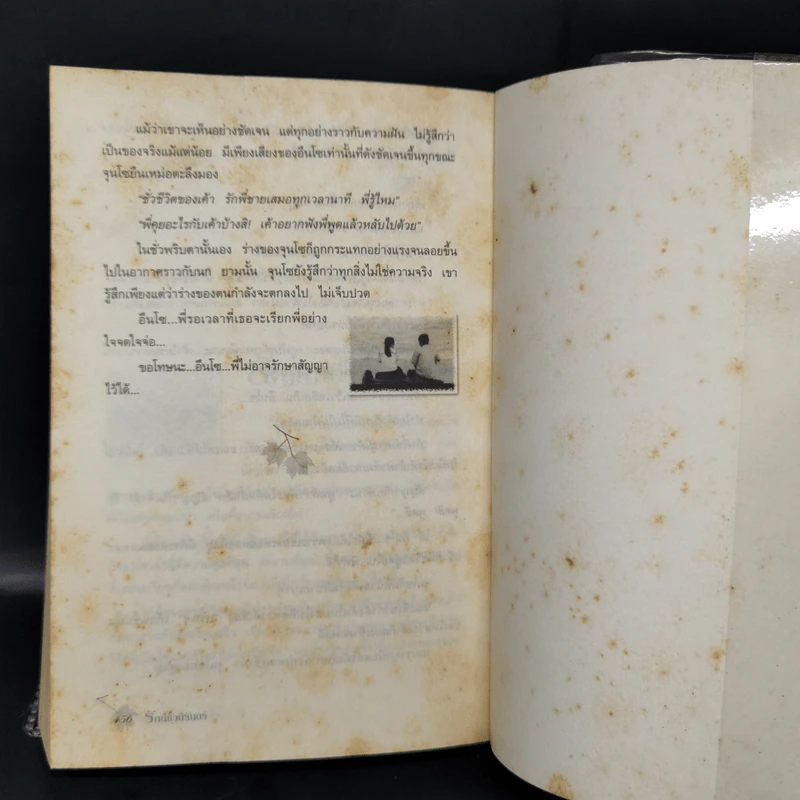 แม้ว่าเขาจะเห็นอย่างชัดเจน แต่ทุกอย่างราวกับความฝัน ไม่รู้สึกว่า
เป็นของจริงแม้แต่น้อย มีเพียงเสียงของอึนโซเท่านั้นที่ดังชัดเจนขึ้นทุกขณะ
จุนโซยืนเหม่อตะลึงมอง
"ชั่วชีวิตของเค้า รักพี่ชายเสมอทุกเวลานาที พี่รู้ไหม"
"พี่คุยอะไรกับเค้าบ้างสิ! เค้าอยากฟังพี่พูดแล้วหลับไปด้วย"
ในชั่วพริบตานั้นเอง ร่างของจุนโซก็ถูกกระแทกอย่างแรงจนลอยขึ้น
ไปในอากาศราวกับนก ยามนั้น จุนโซยังรู้สึกว่าทุกสิ่งไม่ใช่ความจริง เขา
รู้สึกเพียงแต่ว่าร่างของตนกำลังจะตกลงไป ไม่เจ็บปวด
อึนโซ...พี่รอเวลาที่เธอจะเรียกพี่อย่าง
ใจจดใจจ่อ...
ขอโทษนะ...อึนโซ...พี่ไม่อาจรักษาสัญญา
ไว้ได้...
รักนี้ชั่วนิรันดร